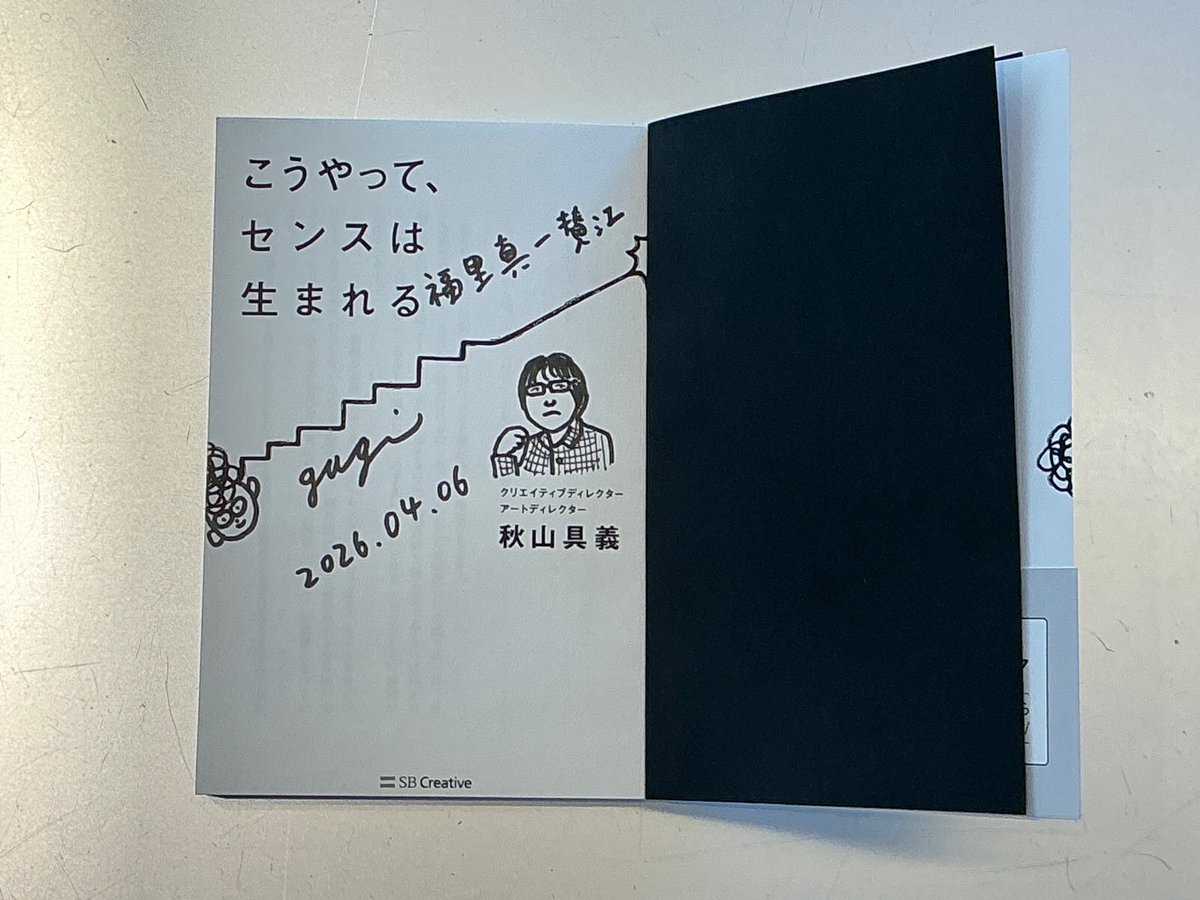 こうやって、
センスは
生まれる
福里真一賛江
gugi
2026.04.06
クリエイティブディレクター
アートディレクター
秋山具義
SB Creative